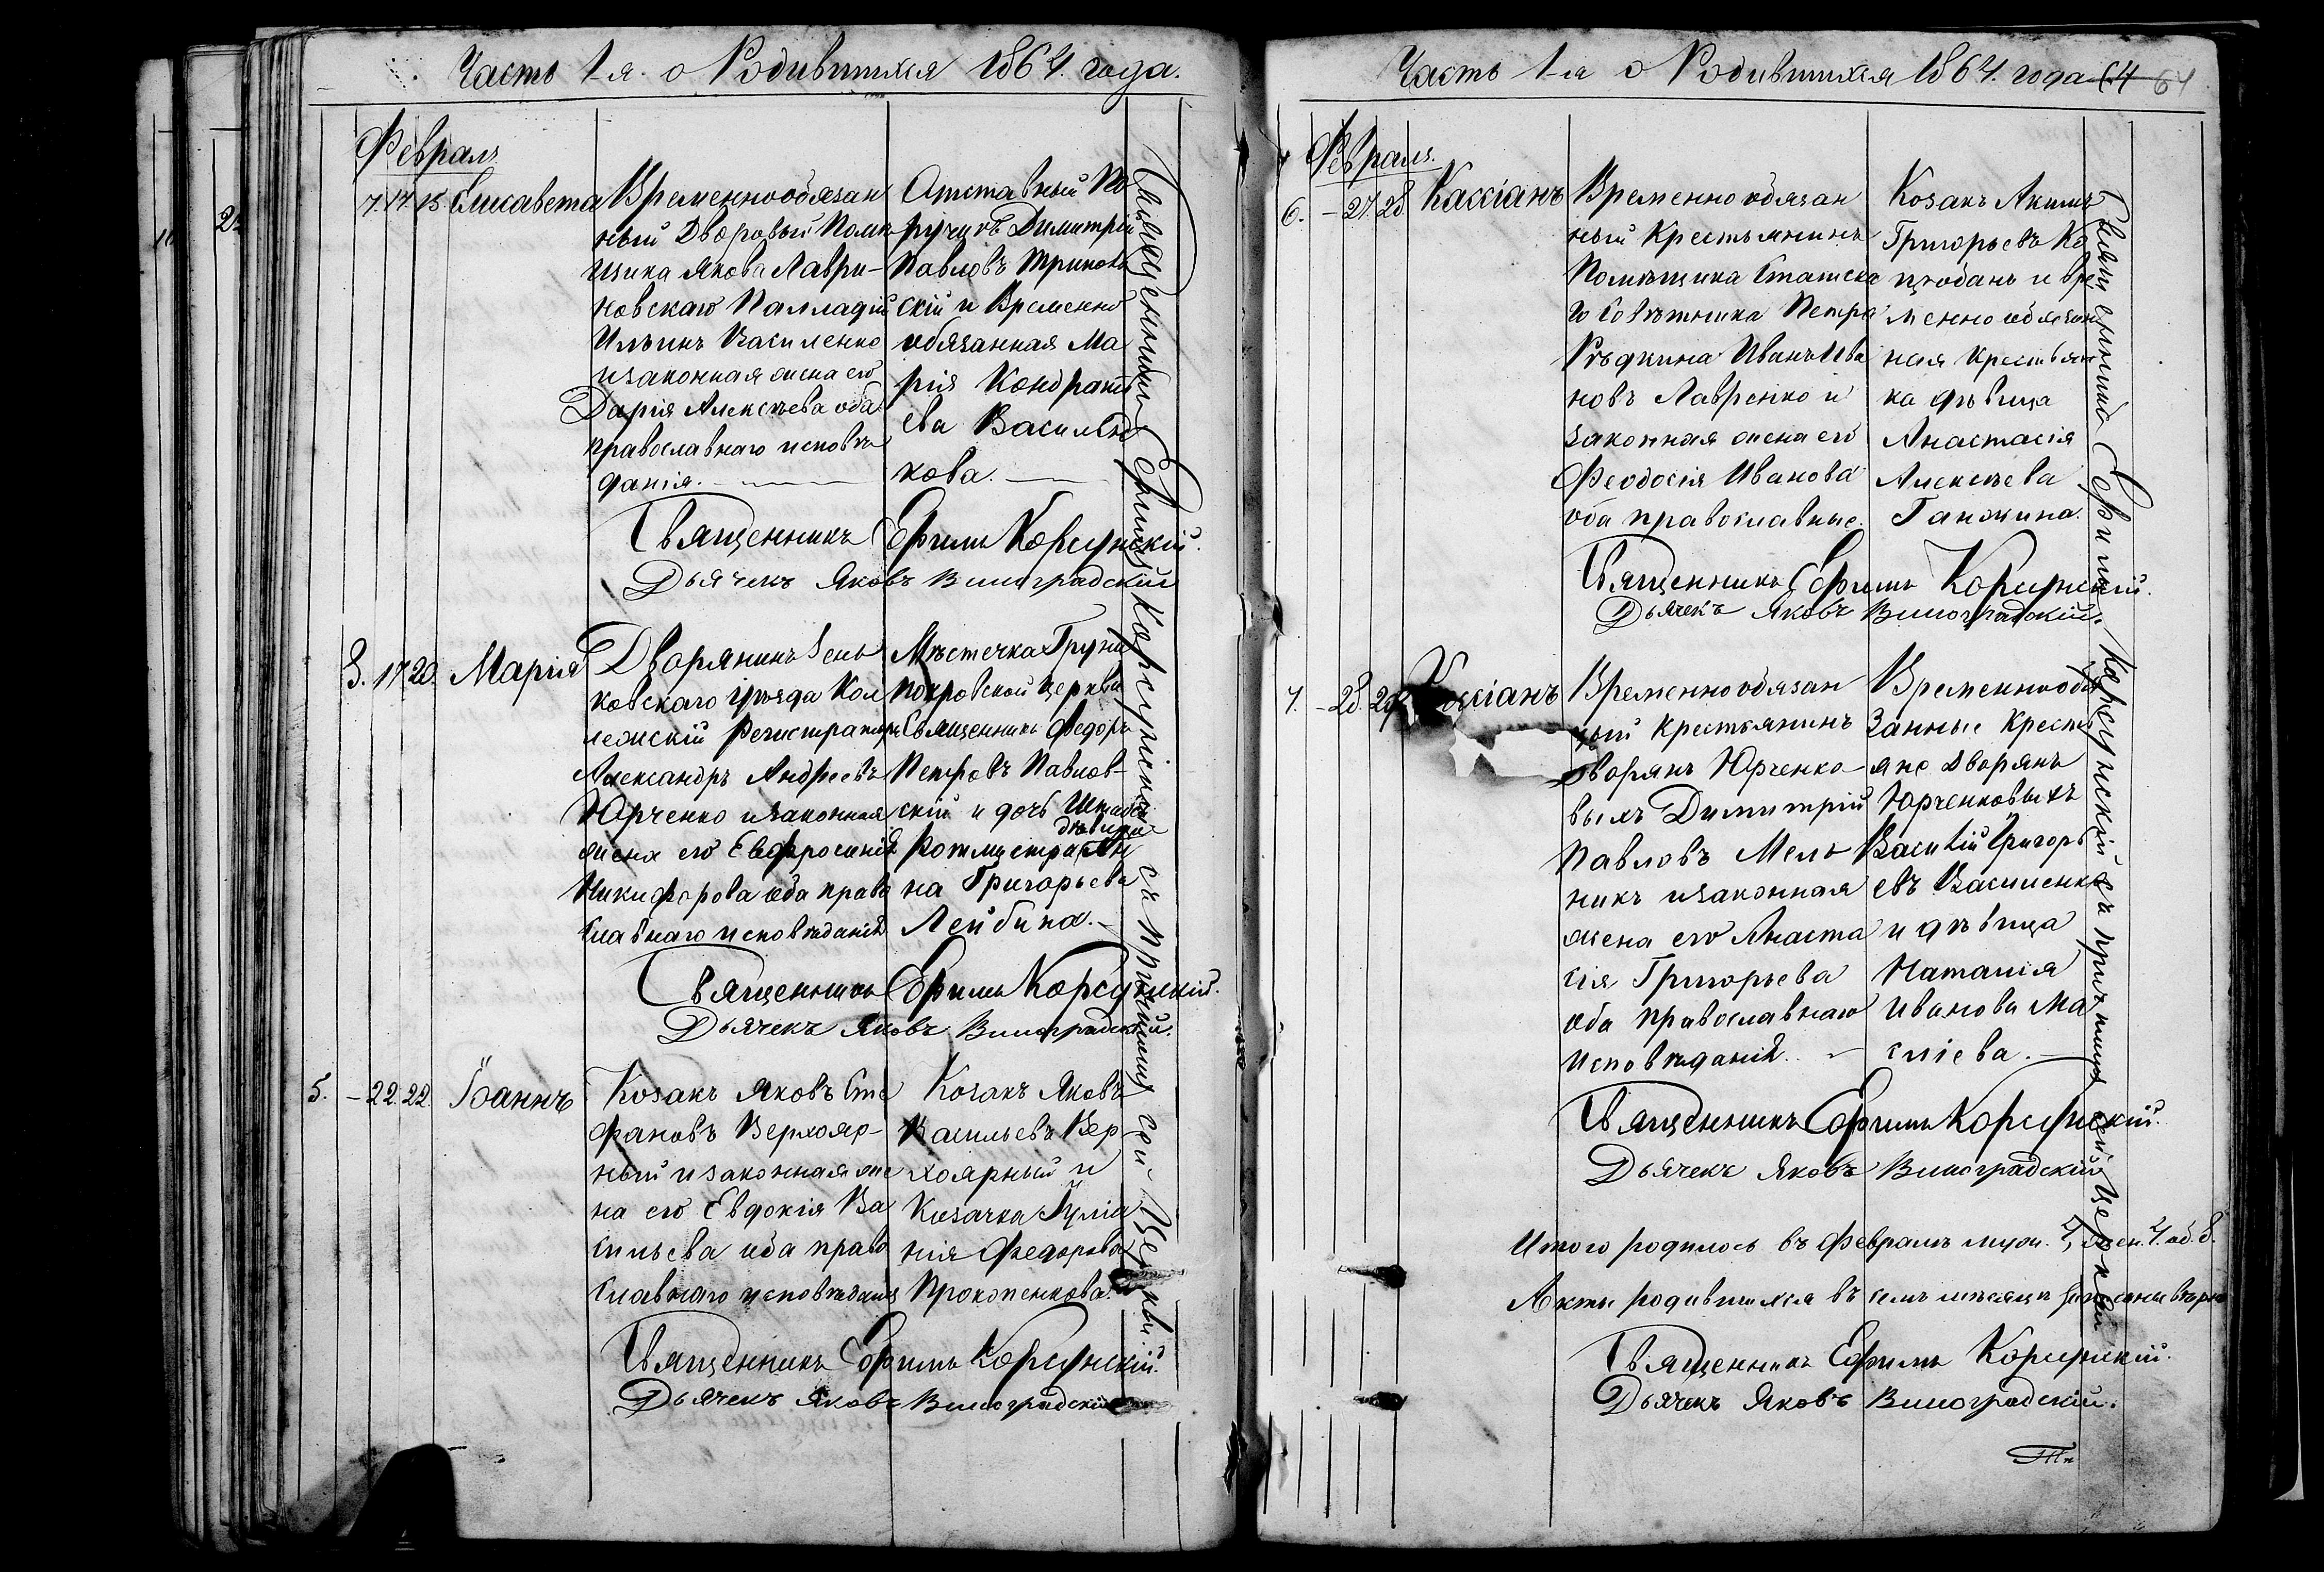 Часть 1-я. о Родившихся 1864. года.
Февраль
7. 17 18. Елисавета
Временнообязан
ный Дворовый Поми
щика Якова Лаври-
новскаго Палладій
Ильинъ Василенко
и законная жена его
Дарія Алексѣева оба
православнаго исповѣ
данія.
Отставный По
ручикъ Димитрій
Павловъ Триков
скій и Временно
обязанная Ма
рія Кондрать
ева Василен
кова.
Священникъ Ефимъ Корсунскій.
Дьячекъ Яковъ Виноградскій
8. 17 20. Марія
Дворянинъ Зень
ковскаго уѣзда Кол
лежскій Регистраторъ
Александръ Андреевъ
Юрченко и законная
жена его Евфросинія
Никифорова оба право
славнаго исповѣданія
Мѣстечка Груни
Покровской церкви
Священникъ Федоръ
Петровъ Павлов-
скій и дочь Штабсъ
дѣвица
Ротмистра Ан
на Григорьева
Лейбина.
Священникъ Ефимъ Корсунскій.
Дьячекъ Яковъ Виноградскій.
5. – 22. 22. Іоаннъ
Козакъ Яковъ Сте
фановъ Верхояр-
ный и законная же
на его Евдокія Ва
сильева оба право
славнаго исповѣданія
Козакъ Яковъ
Васильевъ Вер
хоярный и
Козачка Іулія
нія Федорова
Прокопенкова.
Священникъ Ефимъ Корсунскій.
Дьячекъ Яковъ Виноградскій
Священникъ Ефимъ Корсунскій съ причтомъ сей Церкви.
Часть 1-я о Родившихся 1864. года 64 64
Февраль.
6. – 27. 28. Кассіанъ
Временнообязан
ный Крестьянинъ
Помѣщика Статска
го Совѣтника Петра
Рѣдкина Иванъ Ива
новъ Лавренко и
законная жена его
Феодосія Иванова
оба православные.
Козакъ Акимъ
Григорьевъ Ко
цюбанъ и вре
менно обязан
ная крестьян
ка дѣвица
Анастасія
Алексѣева
Ганжина.
Священникъ Ефимъ Корсунскій.
Дьячекъ Яковъ Виноградскій.
7. – 28. 29. Кассіанъ
Временнообязан
ный крестьянинъ
дворянъ Юрченко-
выхъ Димитрій
Павловъ Мель
никъ и законная
жена его Анаста
сія Григорьева
оба православнаго
исповѣданія.
Временнообя
занные Кресть
яне Дворянъ
Юрченковыхъ
Василій Григорь
евъ Василенко
и дѣвица
Наталія
Иванова Ма
сліева.
Священникъ Ефимъ Корсунскій.
Дьячекъ Яковъ Виноградскій
Итого родилось въ Февралѣ муж. 4, жен. 4. об. 8.
Акты родившихся въ семъ мѣсяцѣ записаны вѣрно
Священникъ Ефимъ Корсунскій.
Дьячекъ Яковъ Виноградскій.
Священникъ Ефимъ Корсунскій съ причтомъ сей Церкви